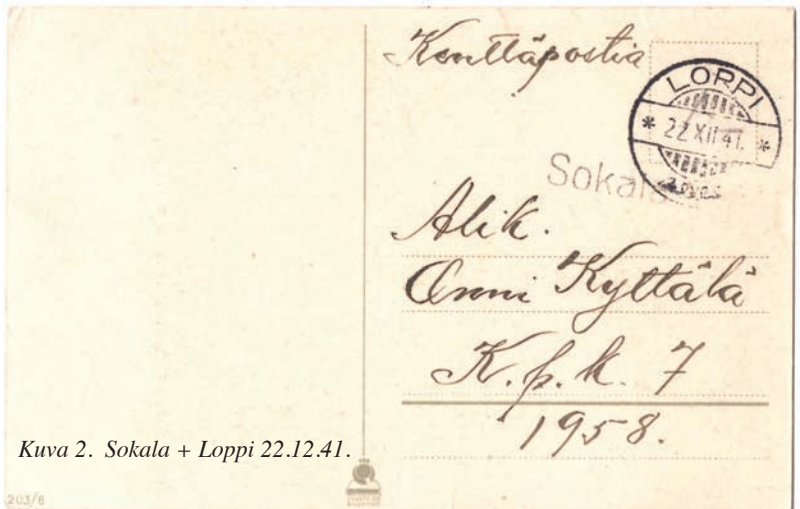 Kenttäpostia
LOPPI
* 22 XII 41. *
Sokala
Alik.
Onni Kyttälä
K.p.k. 7
1958.
Kuva 2. Sokala + Loppi 22.12.41.
203/6